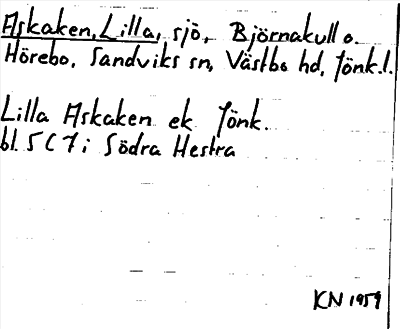 Askaken, Lilla, sjö, Björnakull o.
Hörebo, Sandviks sn, Västbo hd, Jönk.l.
Lilla Askaken ek Jönk.
bl. 5 C 7 i Södra Hestra
KN 1959